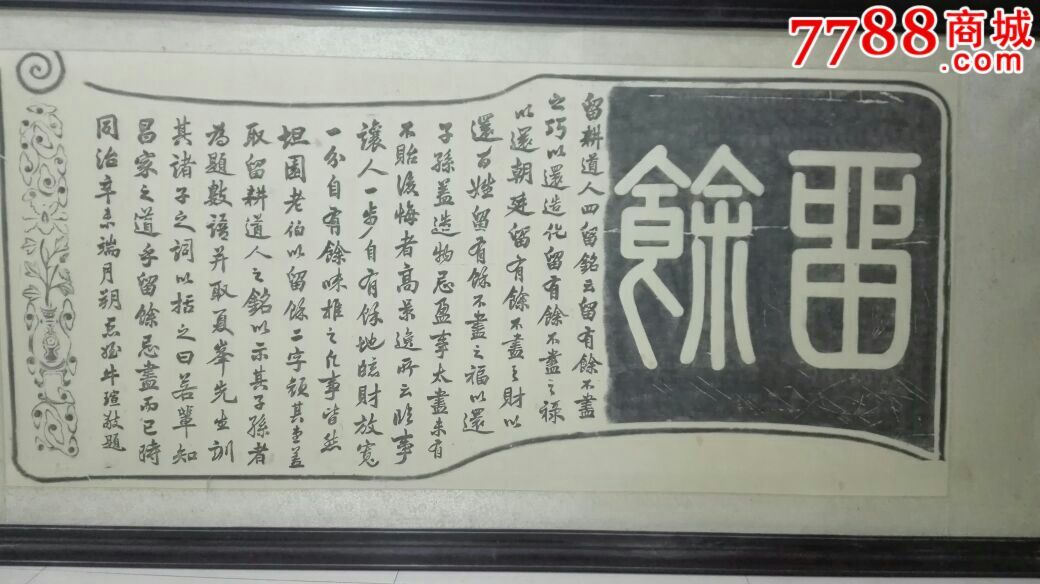 留餘
留耕道人四留銘云留有餘不盡
之巧以還造化留有餘不盡之祿
以還朝廷留有餘不盡之財以
還百姓留有餘不盡之福以還
子孫蓋造物忌盈事太盡未有
不貽後悔者高景逸所云臨事
讓人一步自有餘地臨財放寬
一分自有餘味推之凡事皆然
坦園老伯以留餘二字顏其堂蓋
取留耕道人之銘以示其子孫者
為題數語并取夏峯先生訓
其諸子之詞以括之曰若輩知
昌家之道乎留餘忌盡而已時
同治辛未端月朔愚侄牛瑄敬題
7788商城
.com